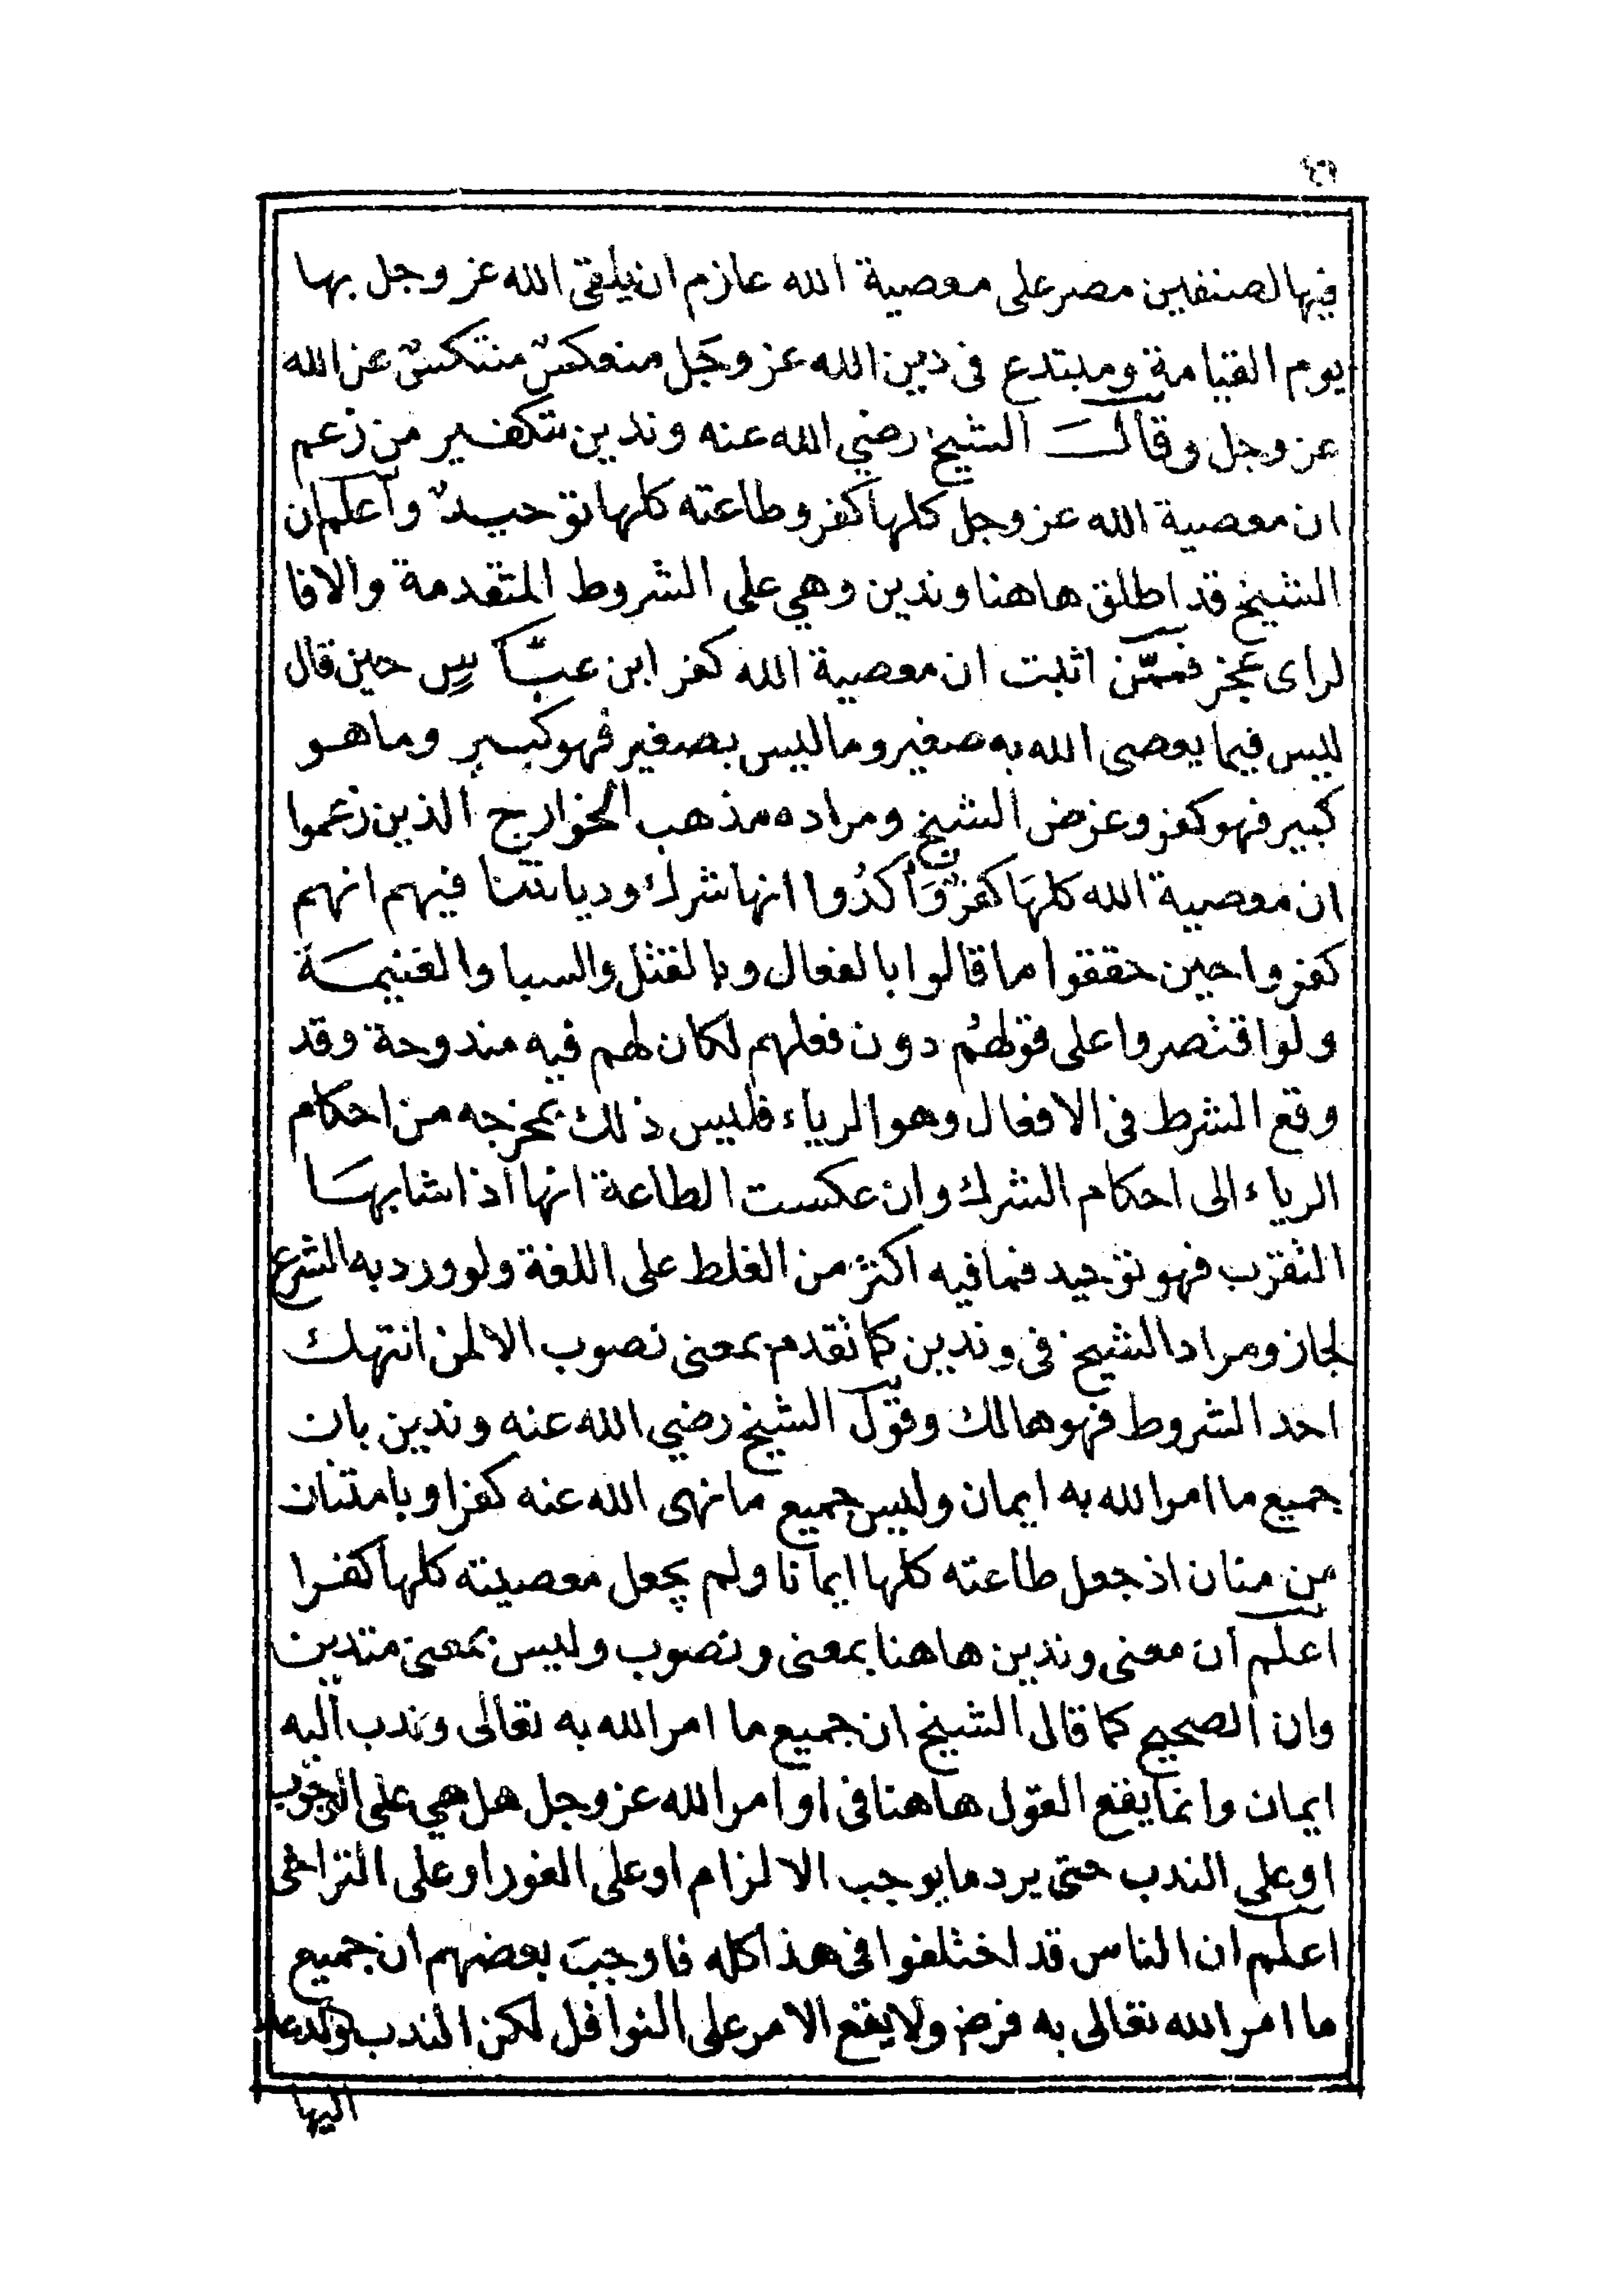 ٤٦
فيها لصنفين مصر على معصية الله عازم ان يلقى الله عز وجل بها
يوم القيامة ومبتدع فى دين الله عز وجَل منعكسٌ منتكسٌ عن الله
عز وجل وقالَ الشيخ رضي الله عنه وندين بتكفير من زعم
ان معصية الله عز وجل كلها كفر وطاعته كلها توحيدٌ واعلم ان
الشيخ قد اطلق هاهنا وندين وهي على الشروط المتقدمة والافا
لراى عجز فممّن اثبت ان معصية الله كفر ابن عبّاسٍ حين قال
ليس فيما يعصى الله به صغير وما ليس بصغير فهو كبير وما هو
كبير فهو كفر وغرض الشيخ ومراده مذهب الخوارج الذين زعموا
ان معصية الله كلهَا كفرٌ وَأكدُوا انها شرك وديانتنا فيهم انهم
كفروا حين حققوا ما قالوا بالفعال وبالقتل والسبا والغنيمَة
ولو اقتصروا على قولهُم دون فعلهم لكان لهم فيه مندوحة وقد
وقع الشرط فى الافعال وهو الرياء فليس ذلك بمخرجه من احكام
الرياء الى احكام الشرك وان عكست الطاعة انها اذا شابهَا
التقرب فهو توحيد فما فيه اكثر من الغلط على اللغة ولو ورد به الشرع
لجاز ومراد الشيخ فى وندين كما تقدم بمعنى نصوب الا لمن انتهك
احد الشروط فهو هالك وقول الشيخ رضي الله عنه وندين بان
جميع ما امر الله به ايمان وليس جميع ما نهى الله عنه كفرا وبامتنان
من منان اذ جعل طاعته كلها ايمانا ولم يجعل معصيته كلها كفرا
اعلم ان معنى وندين هاهنا بمعنى ونصوب وليس بمعنى متدين
وان الصحيح كما قال الشيخ ان جميع ما امر الله به تعالى وندب اليه
ايمان وانما يقع القول هاهنا فى اوامر الله عز وجل هل هي على الوجوب
او على الندب حتى يرد ما يوجب الالزام او على الفور او على التراخى
اعلم ان الناس قد اختلفوا فى هذا كله فاوجبَ بعضهم ان جميع
ما امر الله تعالى به فرض ولا يقع الامر على النوافل لكن الندب والدعا
اليها